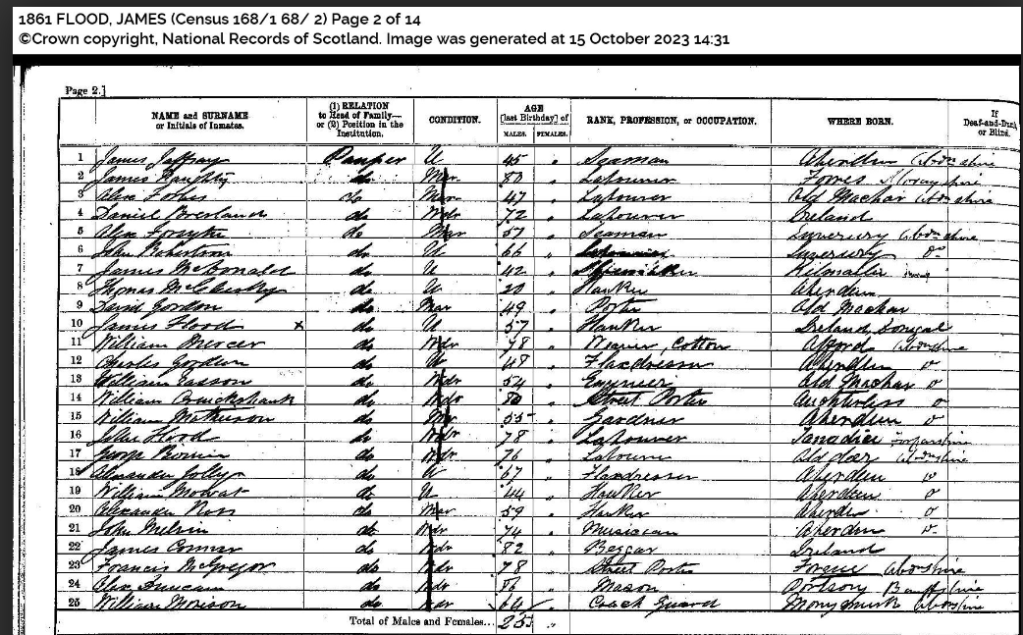 1861 FLOOD, JAMES (Census 168/1 68/ 2) Page 2 of 14
©Crown copyright, National Records of Scotland. Image was generated at 15 October 2023 14:31
Page 2.]
NAME and SURNAME or Initials of Inmates. (1) RELATION to Head of Family— or (2) Position in the Institution. CONDITION. AGE [last Birthday] of MALES. FEMALES. RANK, PROFESSION, or OCCUPATION. WHERE BORN. If Deaf-and-Dumb, or Blind.
1 James Jaffray Pauper U 45 " Seaman Aberdeen Aberdeenshire
2 James do Mar 80 " Labourer Forres Morayshire
3 Alex Forbes do Mar 47 " Labourer Old Machar Abdnshire
4 Daniel do Wdr 72 " Labourer Ireland
5 Alex Forsyth do Mar 57 " Seaman Inverury Abdnshire
6 John Robertson do U 66 " Inverury do
7 James McDonald do U 42 " Kilmallie
8 Thomas do U 20 " Hawker Aberdeen
9 David Gordon do Mar 49 " Porter Old Machar
10 James Flood x do U 57 " Hawker Ireland Donegal
11 William Mercer do Wdr 78 " Weaver, Cotton Alford Abdnshire
12 Charles Gordon do U 48 " Flaxdresser Aberdeen o
13 William Easson do Wdr 54 " Engineer Old Machar o
14 William Cruickshank do Wdr 80 " Street Porter Auchterless o
15 William Mathewson do Mar 55 " Gardner Aberdeen o
16 John Flood do Wdr 78 " Labourer Tanadice Forfarshire
17 George do Wdr 76 " Labourer Old deer Abdnshire
18 Alexander Jolly do U 67 " Flaxdresser Aberdeen o
19 William Mowat do U 44 " Hawker Aberdeen o
20 Alexander Ross do Mar 59 " Hawker Aberdeen o
21 John Melvin do Wdr 74 " Musician Aberdeen o
22 James Connar do Wdr 82 " Beggar Ireland
23 Francis McGregor do Wdr 78 " Street Porter Abdnshire
24 Alex Duncan do Wdr 86 " Mason Portsoy Banffshire
25 William Morison do Mar 64 " Coach Guard Monymusk Abdnshire
Total of Males and Females... 25 "